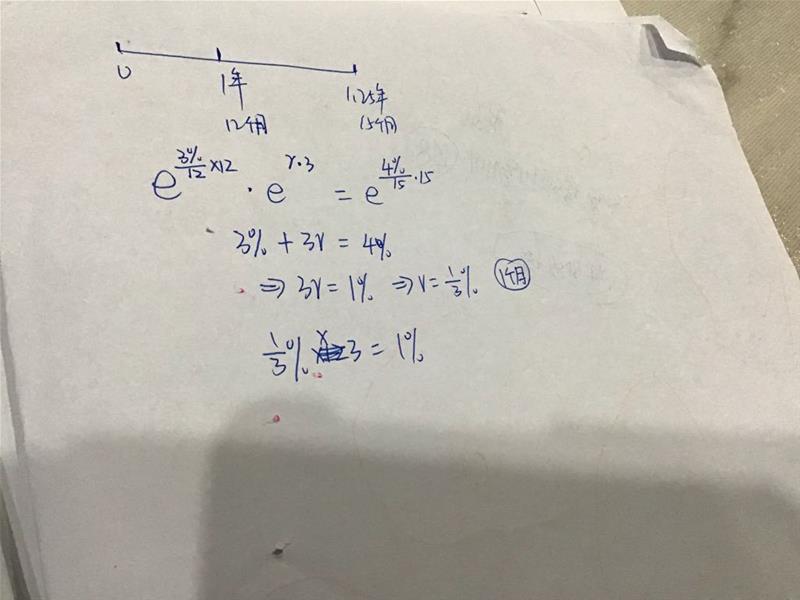 0
1年
1.25年
12个月
15个月
e^{\frac{3%}{12}×12} · e^{r·3} = e^{\frac{4%}{15}·15}
3% + 3r = 4%
⇒ 3r = 1% ⇒ r = \frac{1}{3}% 1个月
\frac{1}{3}% × 3 = 1%